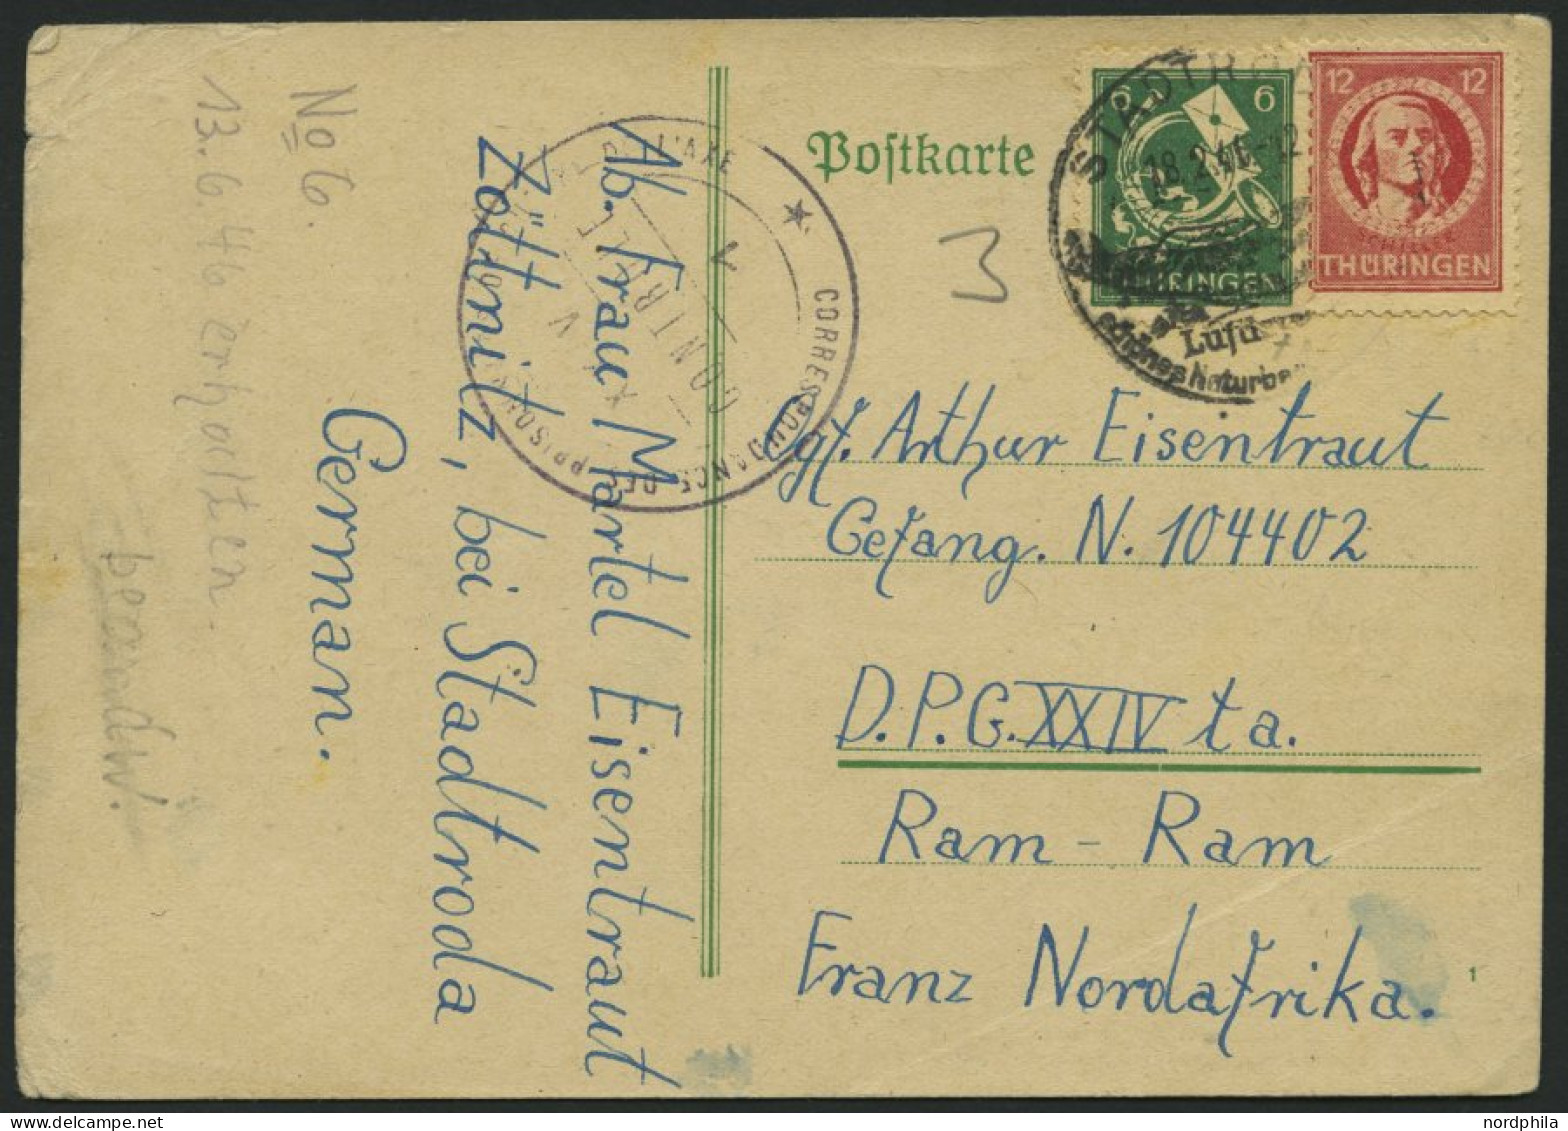 Postkarte
6 6
THÜRINGEN
12 12
SCHILLER
THÜRINGEN
STADTRO
18.2.46-12
Luftku
3
Kgf. Arthur Eisentraut
Gefang. N. 104402
D.P.G. XXIV ta.
Ram-Ram
Franz Nordafrika.
1
CORRESPONDANCE DES PRISON
CONTROLE
Ab. Frau Martel Eisentraut
Zöttnitz, bei Stadtroda
German.
No 6.
13.6.46 erhalten
beantw.
nordphila